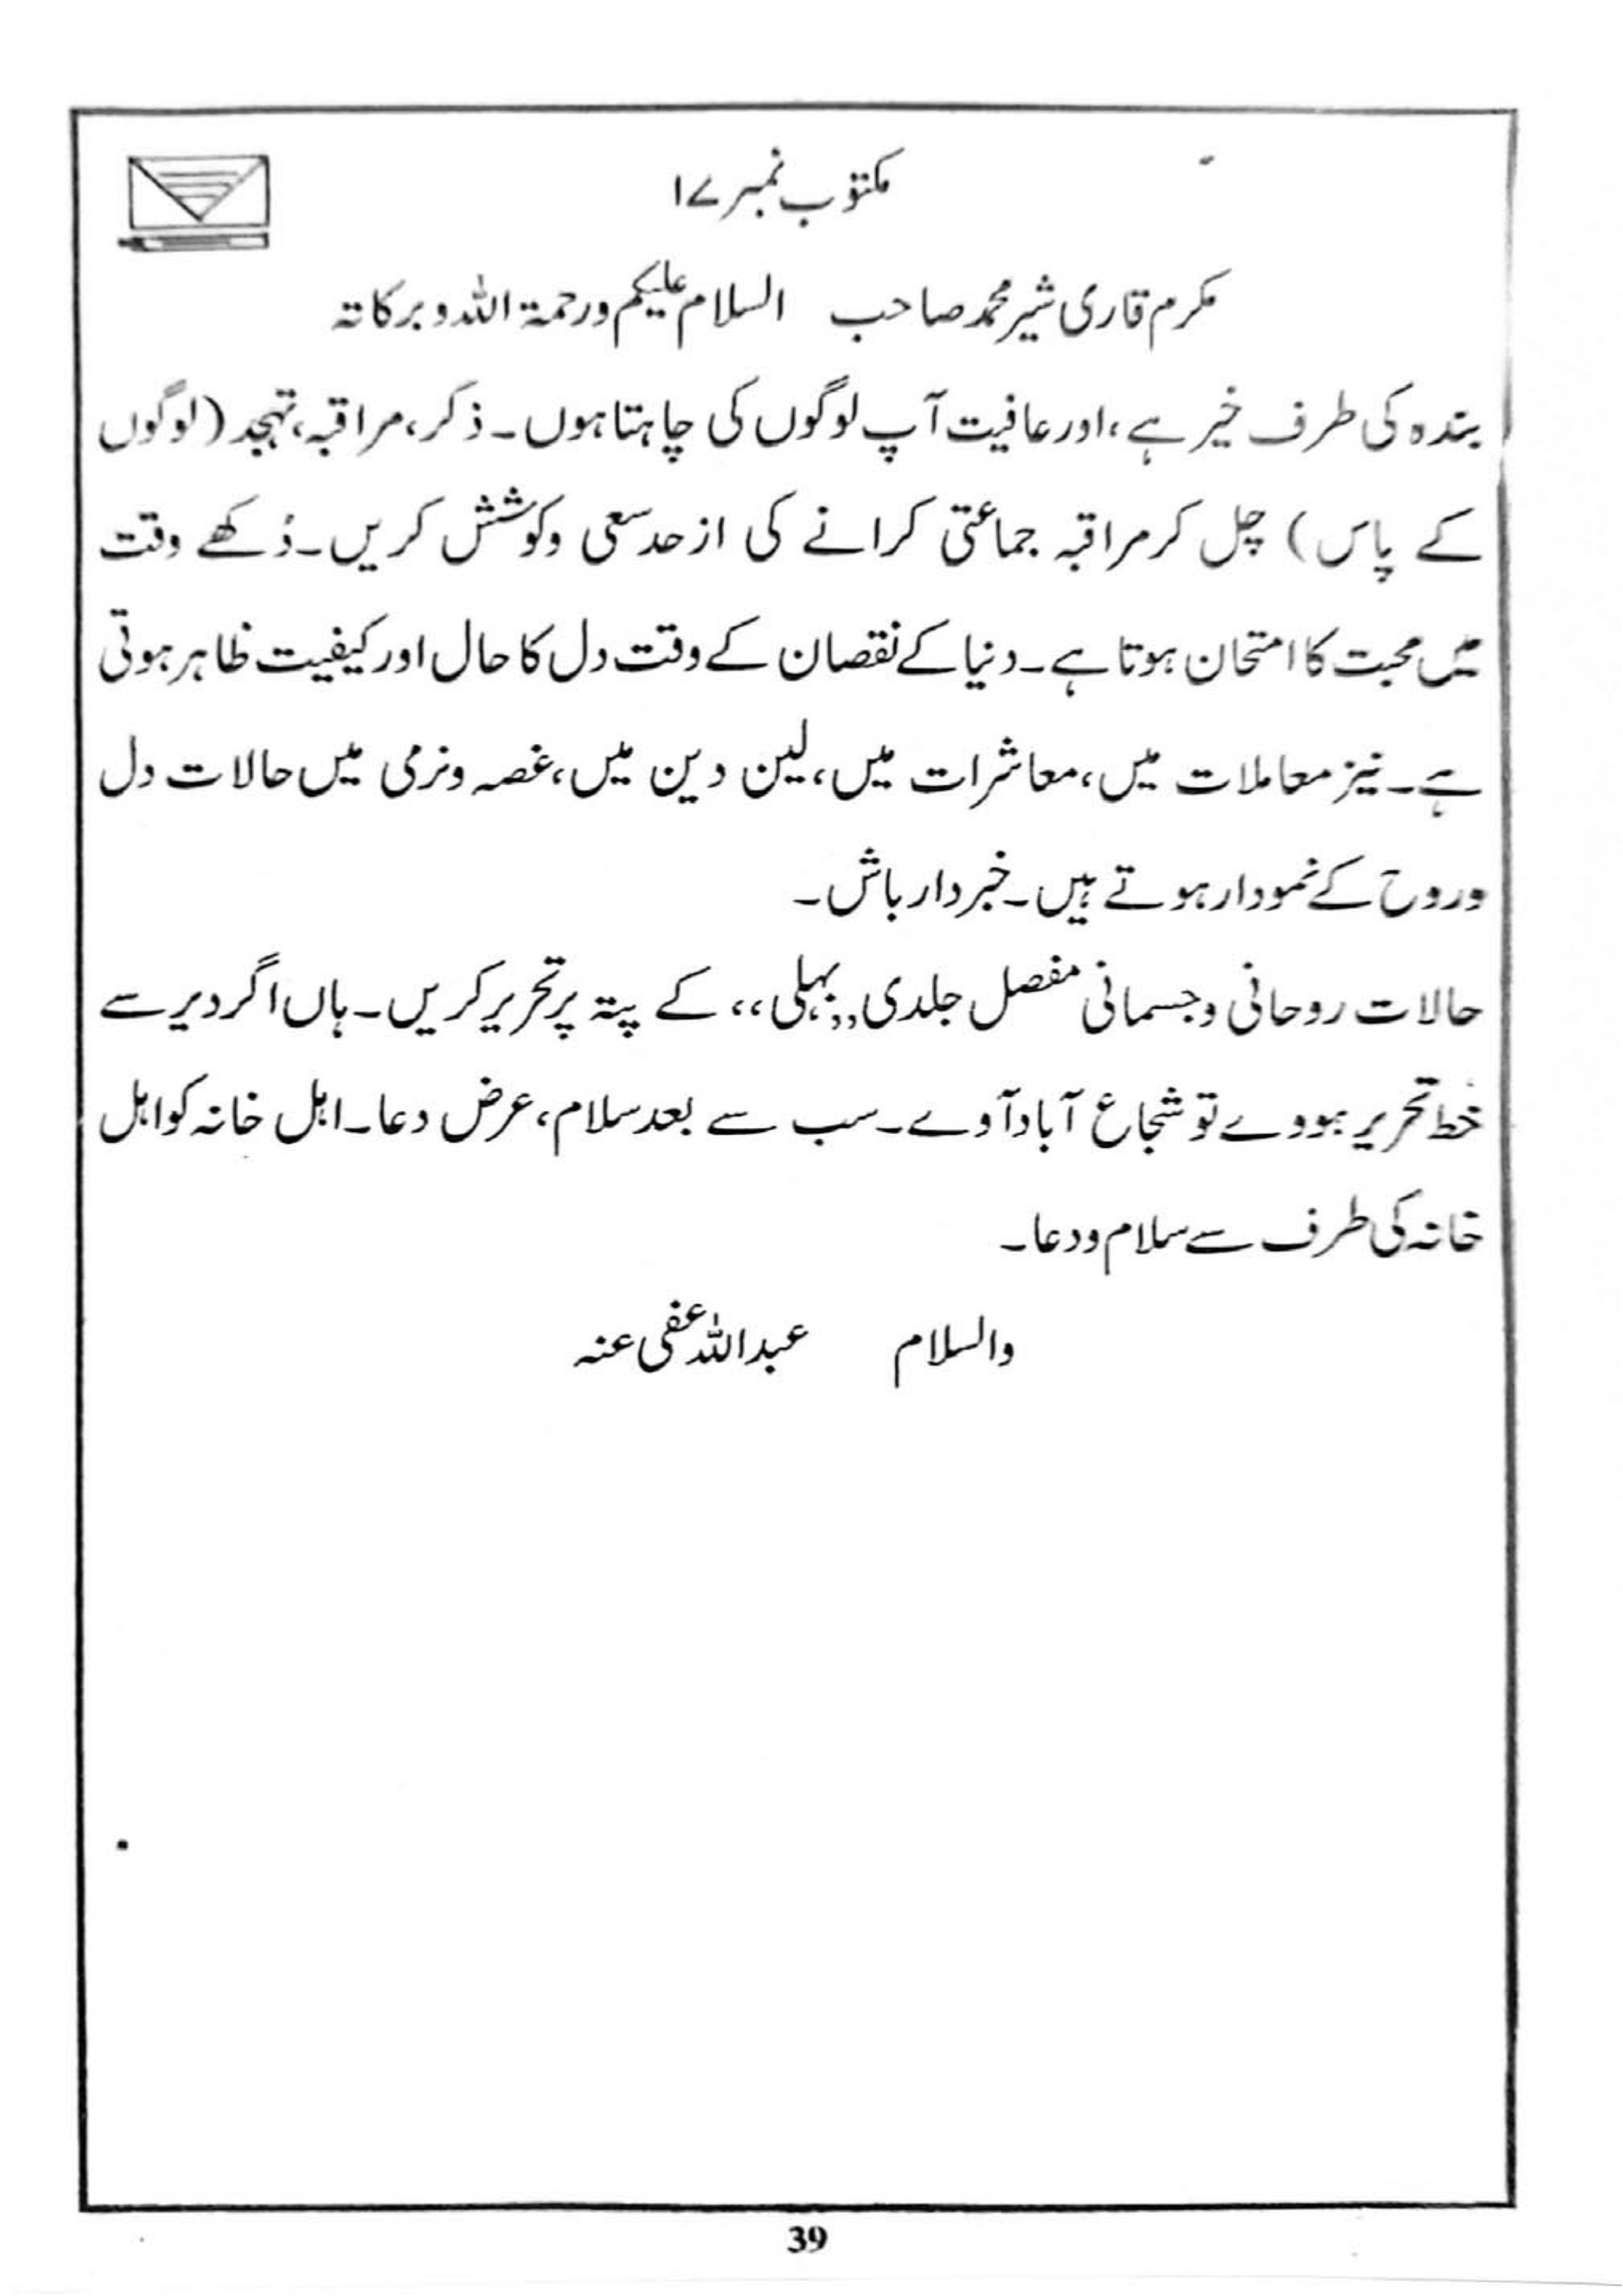 مکتوب نمبر ۱۷
مکرم قاری شیر محمد صاحب السلام علیکم ورحمۃ اللہ وبرکاتہ
بندہ کی طرف خیر ہے، اور عافیت آپ لوگوں کی چاہتا ہوں۔ ذکر، مراقبہ، تہجد (لوگوں
کے پاس) چل کر مراقبہ جماعتی کرانے کی از حد سعی وکوشش کریں۔ دُکھے وقت
میں محبت کا امتحان ہوتا ہے۔ دنیا کے نقصان کے وقت دل کا حال اور کیفیت ظاہر ہوتی
ہے۔ نیز معاملات میں، معاشرات میں، لین دین میں، غصہ ونرمی میں حالات دل
وروح کے نمودار ہوتے ہیں۔ خبردار باش۔
حالات روحانی وجسمانی مفصل جلدی ,,بہلی،، کے پتہ پر تحریر کریں۔ ہاں اگر دیر سے
خط تحریر ہووے تو شجاع آباد آوے۔ سب سے بعد سلام، عرض دعا۔ اہل خانہ کو اہل
خانہ کی طرف سے سلام ودعا۔
والسلام عبداللہ عفی عنہ
39